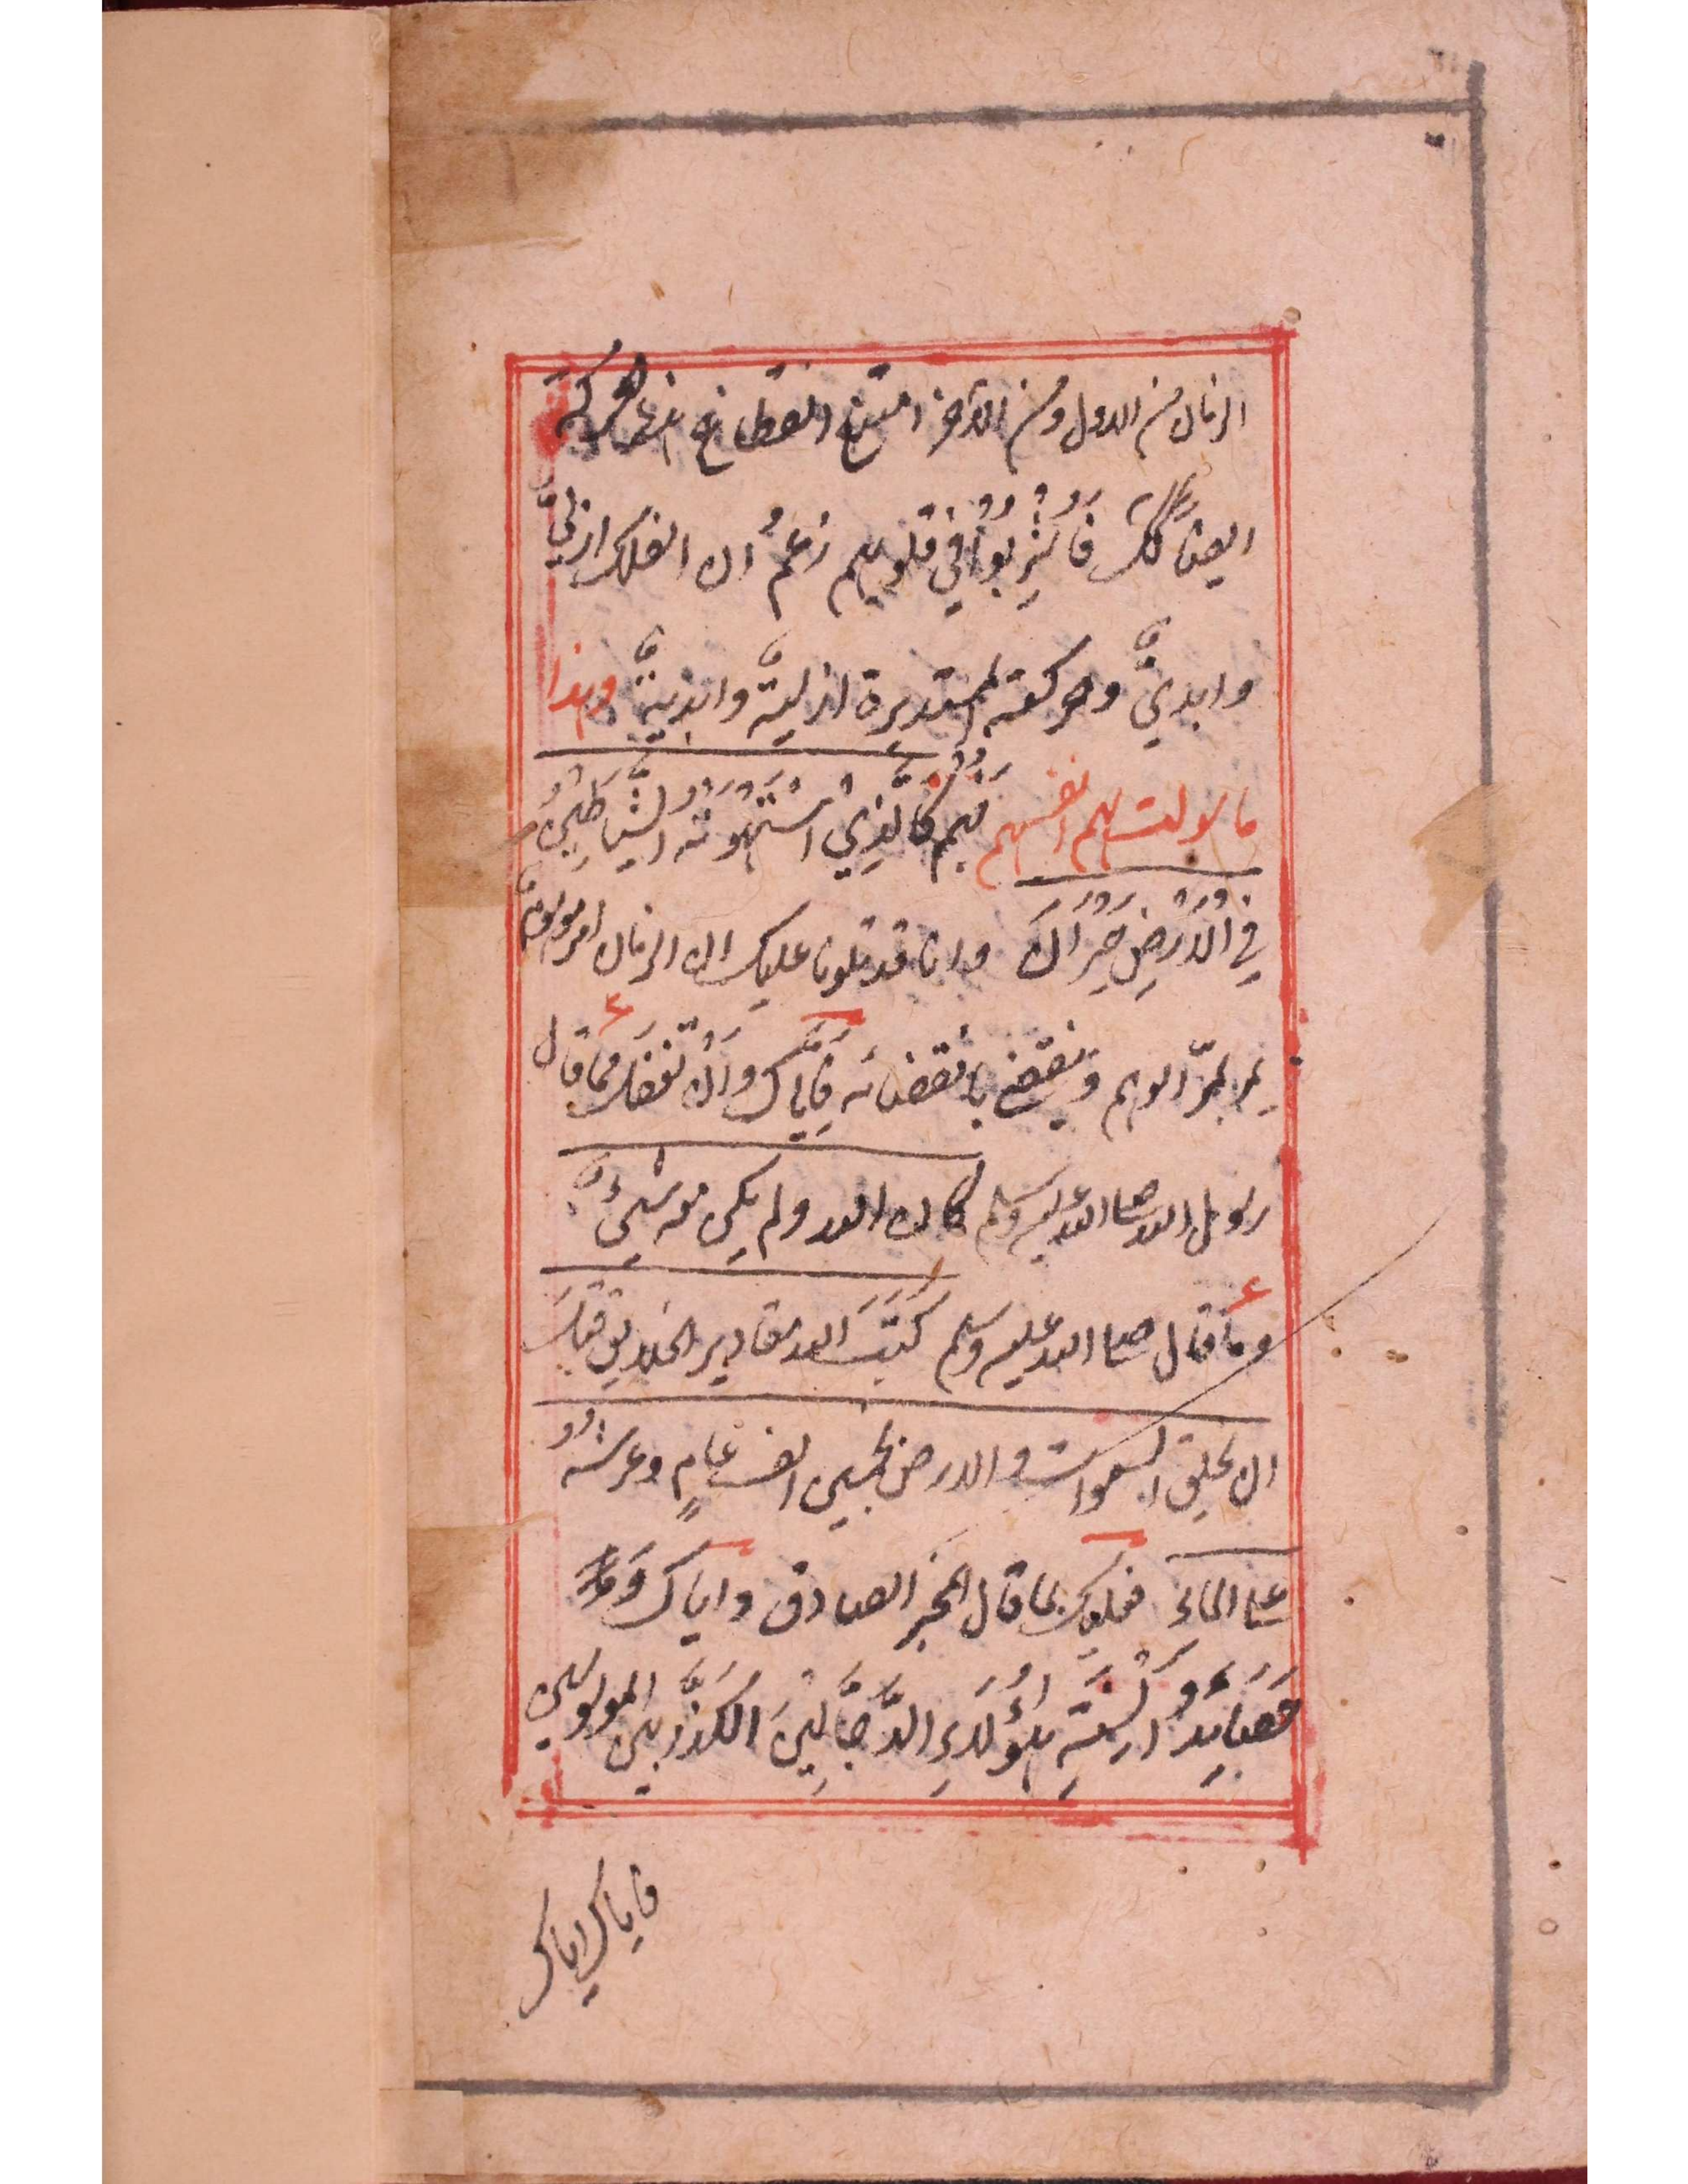 الزمان من الاول ومن الآخر امتنع انقطاع الحركة
ايضا كك فَاُشْرِبُوْا في قلوبهم زعمُ ان الفلك ازليٌّ
وابديٌّ وحركته المستديرة ازليةٌ وابديةٌ وهذا
ما سولت لهم انفسهم فهم كَالَّذِي اسْتَهْوَتْهُ الشَّيَاطِيْنُ
فِي الْاَرْضِ حَيْرَانَ وانا قد تلونا عليك ان الزمان امر موهوم
يمر بمرّ الوهم وينقضي بانقضائه فَاِيَّاكَ وَاَنْ تغفل مما قال
رسول الله صلى الله عليه وسلم كان الله ولم يكن معه شيءٌ
ومما قال صلى الله عليه وسلم كَتَبَ الله مقادير الخلايق قبلَ
ان يخلق السموات والارض بخمسين الف عامٍ وعرشُه
على الماء فعليك بما قال المخبر الصادق واياك وَ
حَصَايِدَ اَلْسِنَةِ هٰؤُلَاءِ الدَّجَّالِيْنَ الكذّابين الموسوسين
فاياك اياك